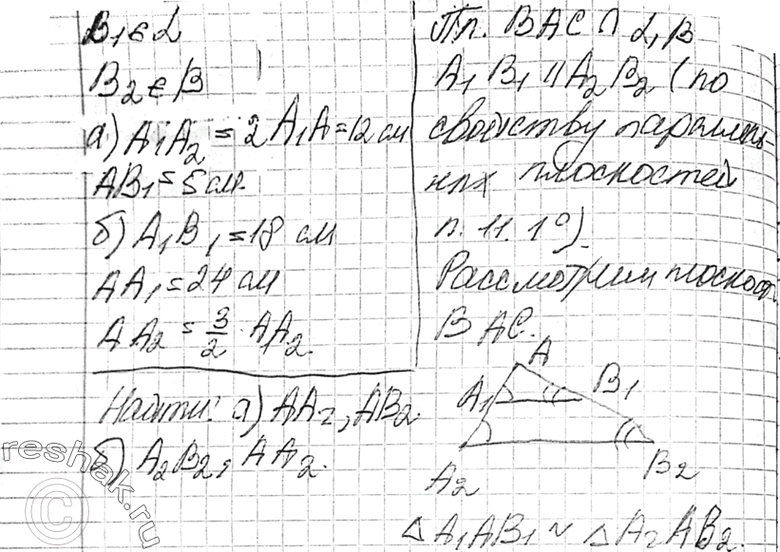 B₁ ∈ α
B₂ ∈ β
а) A₁A₂ = 2A₁A = 12 см
AB₁ = 5 см.
б) A₁B₁ = 18 см
AA₁ = 24 см
AA₂ = 3/2 A₁A₂.
Найти: а) AA₂, AB₂.
б) A₂B₂, AA₂.
Пл. BAC ∩ α, β
A₁B₁ ∥ A₂B₂ (по
свойству параллель-
ных плоскостей
п. 11. 1°).
Рассмотрим плоскость
BAC.
A
A₁
B₁
A₂
B₂
△ A₁AB₁ ~ △ A₂AB₂.
reshak.ru
©